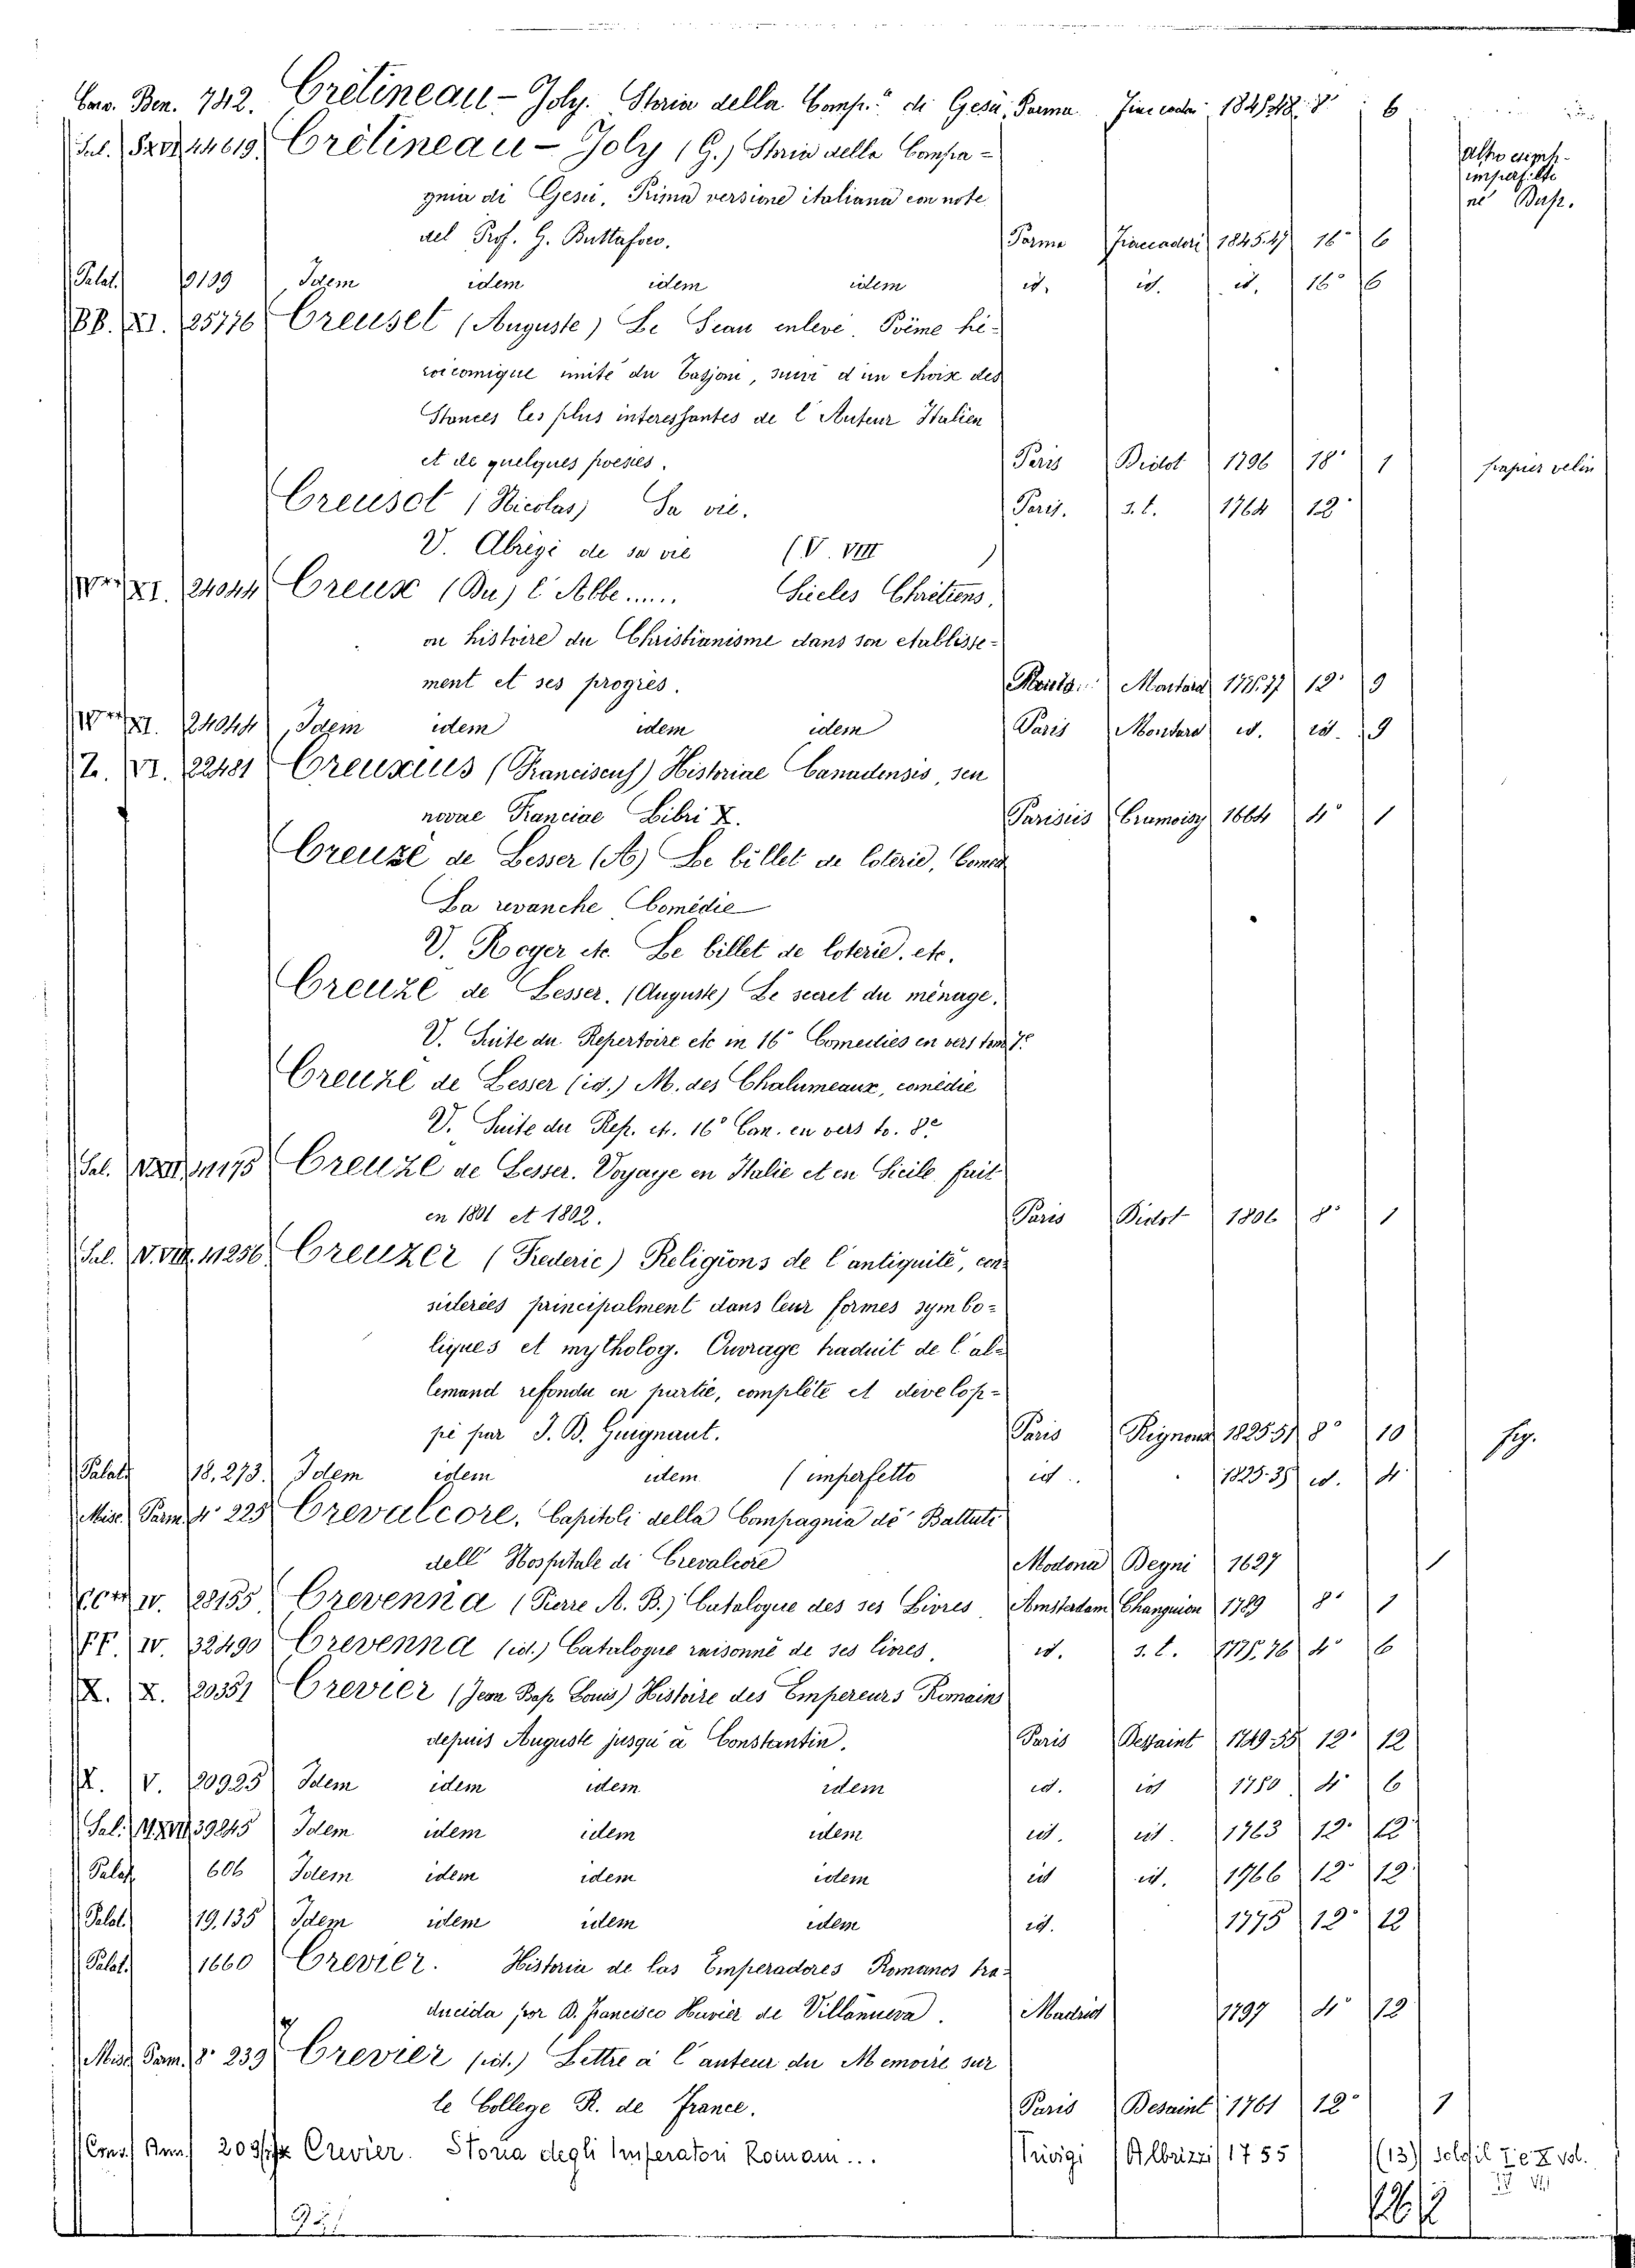 Ben. 742. Crétineau-Joly. Storia della Comp.ª di Gesù, Parma. Fiaccadori 1845.48. 8° 6
Sal. 44619 Crétineau-Joly (G.) Storia della Compa-
gnia di Gesù, Prima versione italiana con note
del Prof. G. Buttafoco. Parma Fiaccadori 1845.47 16° 6
altro esempl.
imperfetto
Palat. 9139 Idem idem idem idem id. id. id. 16° 6
BB. XI. 25776 Creuset (Auguste) Le Seau enlevé. Poëme hé-
roicomique imité du Tassoni, suivi d'un choix des
Stances les plus interessantes de l'Auteur Italien
et de quelques poesies. Paris Didot 1796 18° 1 papier velin
Creusot (Nicolas) Sa vie. Paris. s. t. 1764 12°
V. Abrégé de sa vie (V. VIII )
XI. 24044 Creuse (Du) l'Abbe..... Siecles Chrêtiens,
ou histoire du Christianisme dans son etablisse-
ment et ses progrès. 12° 9
XI. 24044 Idem idem idem idem Paris Montard id. id. 9
Z. VI. 22481 Creuxius (Franciscus) Historiae Canadensis, seu
novae Franciae Libri X. Parisiis Cramoisy 1664 4° 1
Creuzé de Lesser (A) Le billet de loterie, Coméd
La revanche Comédie
V. Roger etc. Le billet de loterie. etc.
Creuzé de Lesser. (Auguste) Le secret du ménage.
V. Suite du Repertoire etc in 16° Comedies en vers tom 7.
Creuzé de Lesser (id.) M. des Chalumeaux, comédie
V. Suite du Rep. et. 16° Com. en vers to. 8.e
Sal. 41175 Creuzé de Lesser. Voyage en Italie et en Sicile fait
en 1801 et 1802. Paris Didot 1806 8° 1
Sal. V.VIII. 41256 Creuzer (Frederic) Religions de l'antiquité, con-
siderées principalment dans leur formes symbo-
liques et mytholog. Ouvrage traduit de l'al-
lemand refondu en partie, complété et dévelop-
pé par J. B. Guignaut. Paris 1825.51 8° 10 fig.
Palat. 18.273. Idem idem idem (imperfetto id.. 1825.35 id. 4
Misc. Parm. 4° 225 Crevalcore, Capitoli della Compagnia de' Battuti
dell' Hospitale di Crevalcore Modona Degni 1627 1
IV. 28155 Crevenna (Pierre A. B.) Catalogue des ses Livres Amsterdam Changuion 1789 8° 1
FF. IV. 32490 Crevenna (id.) Catalogue raisonné de ses livres. id. s. t. 1775.76 4° 6
X. X. 20351 Crevier (Jean Bap Louis) Histoire des Empereurs Romains
depuis Auguste jusqu'à Constantin. Paris Dessaint 1749.55 12° 12
X. V. 20925 Idem idem idem idem id. id 1750 4° 6
Sal. 39245 Idem idem idem idem id. id. 1763 12° 12
Palat 606 Idem idem idem idem id id. 1766 12° 12
Palat. 19.135 Idem idem idem idem id. 1775 12° 12
Palat. 1660 Crevier. Historia de las Emperadores Romanos tra-
ducida por D. Francisco Huvier de Villanueva. Madrid 4° 12
Misc. Parm. 8° 239 Crevier (id.) Lettre à l'auteur du Memoire sur
le College R. de France. Paris Desaint 1761 12° 1
Crevier. Storia degli Imperatori Romani... Trivigi Albrizzi 1755 (13)